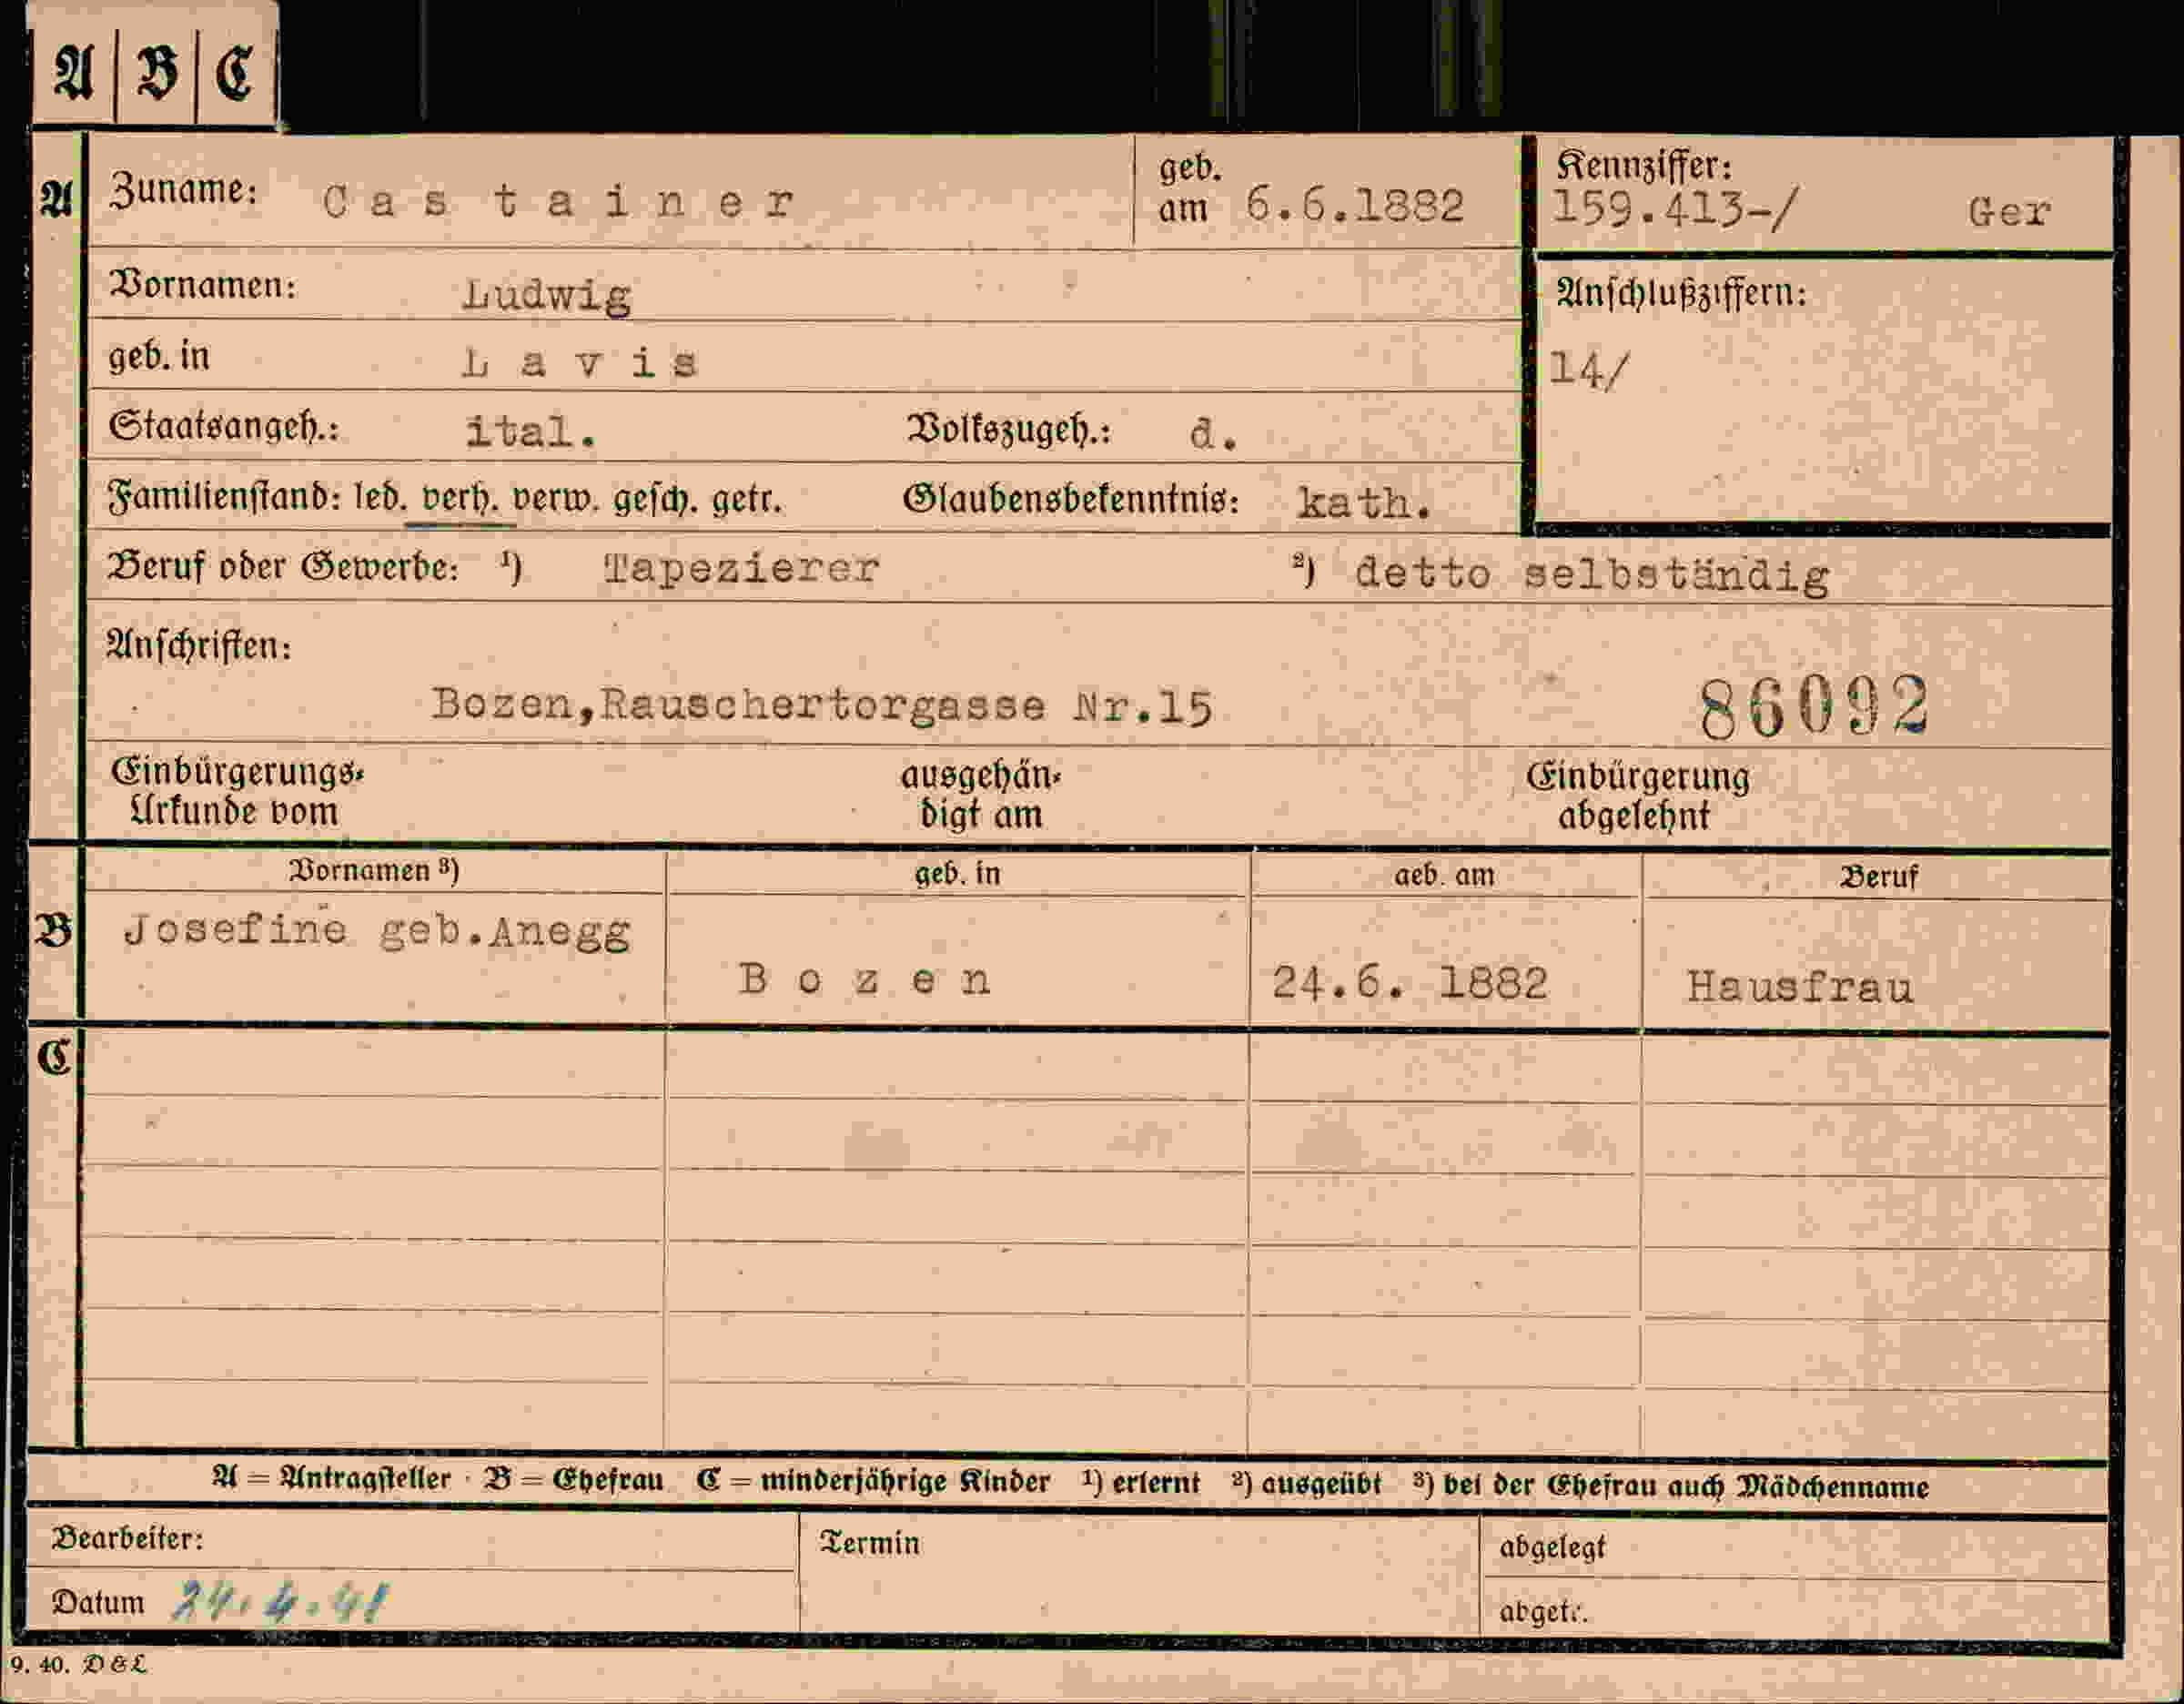 A | B | C
A Zuname: Castainer geb. am 6.6.1882 Kennziffer: 159.413-/ Ger
Vornamen: Ludwig Anschlußziffern:
geb. in Lavis 14/
Staatsangeh.: ital. Volkszugeh.: d.
Familienstand: led. verh. verw. gesch. getr. Glaubensbekenntnis: kath.
Beruf oder Gewerbe: ¹) Tapezierer ²) detto selbständig
Anschriften:
Bozen,Rauschertorgasse Nr.15 86092
Einbürgerungs- ausgehän- Einbürgerung
Urkunde vom digt am abgelehnt
Vornamen ³) geb. in geb. am Beruf
B Josefine geb.Anegg
Bozen 24.6. 1882 Hausfrau
C
A = Antragsteller · B = Ehefrau C = minderjährige Kinder ¹) erlernt ²) ausgeübt ³) bei der Ehefrau auch Mädchenname
Bearbeiter: Termin abgelegt
Datum 24.4.41 abgetr.
9. 40. D & L